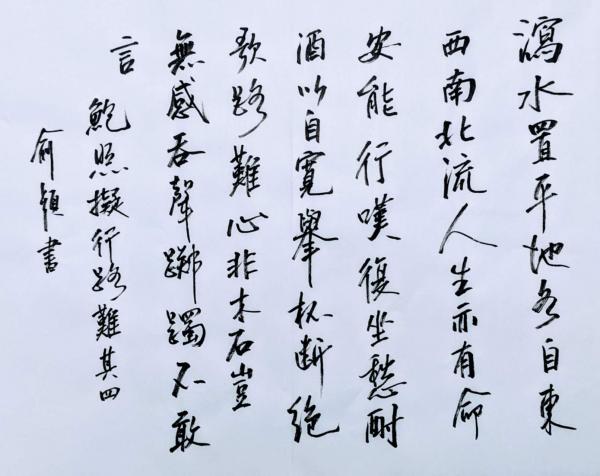 瀉水置平地各自東
西南北流人生亦有命
安能行嘆復坐愁酌
酒以自寬舉杯斷絕
歌路難心非木石豈
無感吞聲躑躅不敢
言
鮑照擬行路難其四
俞 書